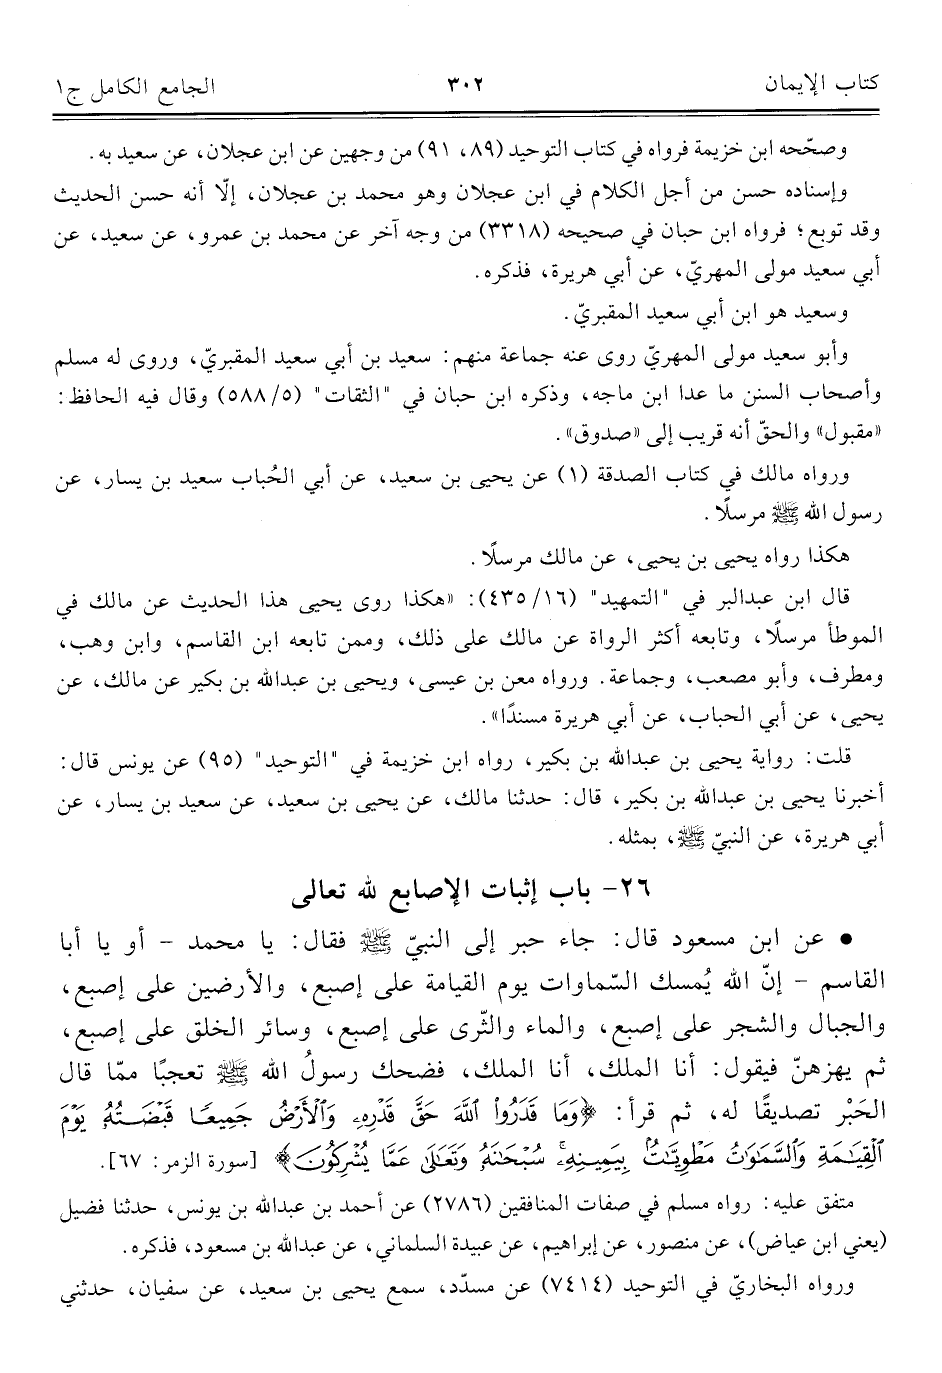 كتاب الإيمان ٣٠٢ الجامع الكامل ج١
وصحّحه ابن خزيمة فرواه في كتاب التوحيد (٨٩، ٩١) من وجهين عن ابن عجلان، عن سعيد به.
وإسناده حسن من أجل الكلام في ابن عجلان وهو محمد بن عجلان، إلّا أنه حسن الحديث
وقد توبع؛ فرواه ابن حبان في صحيحه (٣٣١٨) من وجه آخر عن محمد بن عمرو، عن سعيد، عن
أبي سعيد مولى المهريّ، عن أبي هريرة، فذكره.
وسعيد هو ابن أبي سعيد المقبريّ.
وأبو سعيد مولى المهريّ روى عنه جماعة منهم: سعيد بن أبي سعيد المقبريّ، وروى له مسلم
وأصحاب السنن ما عدا ابن ماجه، وذكره ابن حبان في "الثقات" (٥/٥٨٨) وقال فيه الحافظ:
«مقبول» والحقّ أنه قريب إلى «صدوق».
ورواه مالك في كتاب الصدقة (١) عن يحيى بن سعيد، عن أبي الحُباب سعيد بن يسار، عن
رسول الله ﷺ مرسلًا.
هكذا رواه يحيى بن يحيى، عن مالك مرسلًا.
قال ابن عبدالبر في "التمهيد" (١٦/٤٣٥): «هكذا روى يحيى هذا الحديث عن مالك في
الموطأ مرسلًا، وتابعه أكثر الرواة عن مالك على ذلك، وممن تابعه ابن القاسم، وابن وهب،
ومطرف، وأبو مصعب، وجماعة. ورواه معن بن عيسى، ويحيى بن عبدالله بن بكير عن مالك، عن
يحيى، عن أبي الحباب، عن أبي هريرة مسندًا».
قلت: رواية يحيى بن عبدالله بن بكير، رواه ابن خزيمة في "التوحيد" (٩٥) عن يونس قال:
أخبرنا يحيى بن عبدالله بن بكير، قال: حدثنا مالك، عن يحيى بن سعيد، عن سعيد بن يسار، عن
أبي هريرة، عن النبيّ ﷺ، بمثله.
٢٦- باب إثبات الإصابع لله تعالى
• عن ابن مسعود قال: جاء حبر إلى النبيّ ﷺ فقال: يا محمد - أو يا أبا
القاسم - إنّ الله يُمسك السّماوات يوم القيامة على إصبع، والأرضين على إصبع،
والجبال والشجر على إصبع، والماء والثّرى على إصبع، وسائر الخلق على إصبع،
ثم يهزهنّ فيقول: أنا الملك، أنا الملك، فضحك رسولُ الله ﷺ تعجبًا ممّا قال
الحَبْر تصديقًا له، ثم قرأ: ﴿وَمَا قَدَرُواْ ٱللَّهَ حَقَّ قَدۡرِهِۦ وَٱلۡأَرۡضُ جَمِيعٗا قَبۡضَتُهُۥ يَوۡمَ
ٱلۡقِيَٰمَةِ وَٱلسَّمَٰوَٰتُ مَطۡوِيَّٰتُۢ بِيَمِينِهِۦۚ سُبۡحَٰنَهُۥ وَتَعَٰلَىٰ عَمَّا يُشۡرِكُونَ﴾ [سورة الزمر: ٦٧].
متفق عليه: رواه مسلم في صفات المنافقين (٢٧٨٦) عن أحمد بن عبدالله بن يونس، حدثنا فضيل
(يعني ابن عياض)، عن منصور، عن إبراهيم، عن عبيدة السلماني، عن عبدالله بن مسعود، فذكره.
ورواه البخاريّ في التوحيد (٧٤١٤) عن مسدّد، سمع يحيى بن سعيد، عن سفيان، حدثني